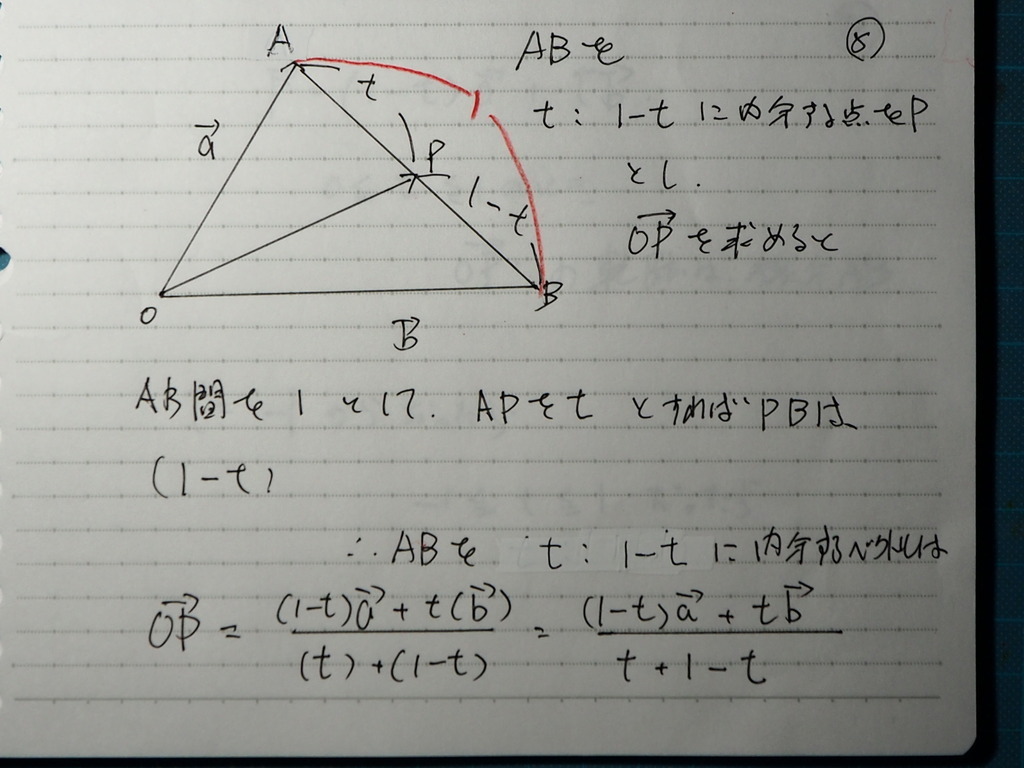 ABを
⑧
A
t
t: 1-t に内分する点をP
a⃗
P
とし.
1-t
OP⃗ を求めると
B
O
B⃗
AB間を 1 として. APをt とすれば PBは
(1-t)
∴ABを t: 1-t に内分するベクトルは
OP⃗ = ((1-t)a⃗ + t(b⃗)) / ((t)+(1-t)) = ((1-t)a⃗ + tb⃗) / (t+1-t)